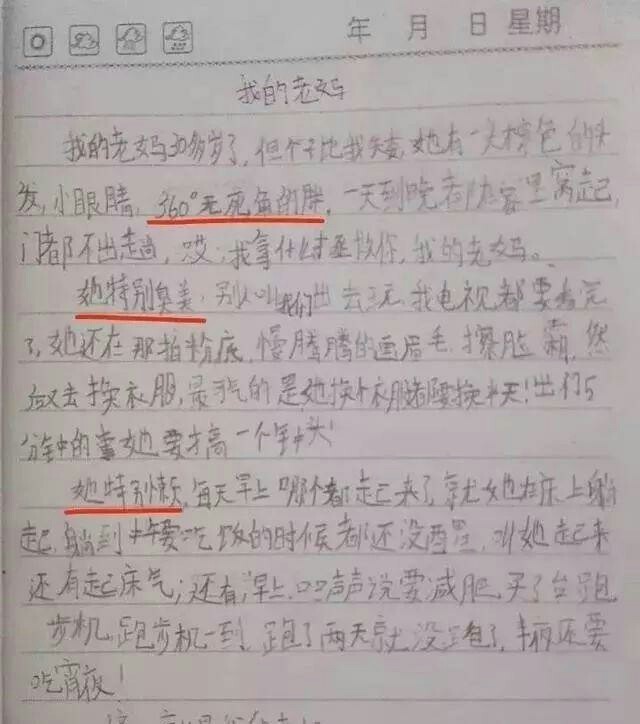 年 月 日 星期
我的老妈
我的老妈30多岁了,但个子比我矮,她有一头棕色的头
发,小眼睛,360°无死角的胖,一天到晚都在家里窝起,
门都不出趟,哎,我拿什么拯救你,我的老妈。
她特别臭美,别人叫我们出去玩,我电视都要看完
了,她还在那拍粉底,慢腾腾的画眉毛,擦脸霜,然
后又去换衣服,最气的是她换个衣服都要换半天!出门5
分钟的事她要搞一个钟头!
她特别懒,每天早上哪个都起来了,就她在床上躺
起,躺到中午要吃饭的时候都还没酉星,叫她起来
还有起床气;还有,早上口口声声说要减肥,买了台跑
步机,跑步机一到,跑了两天就没跑了,半夜还要
吃宵夜!